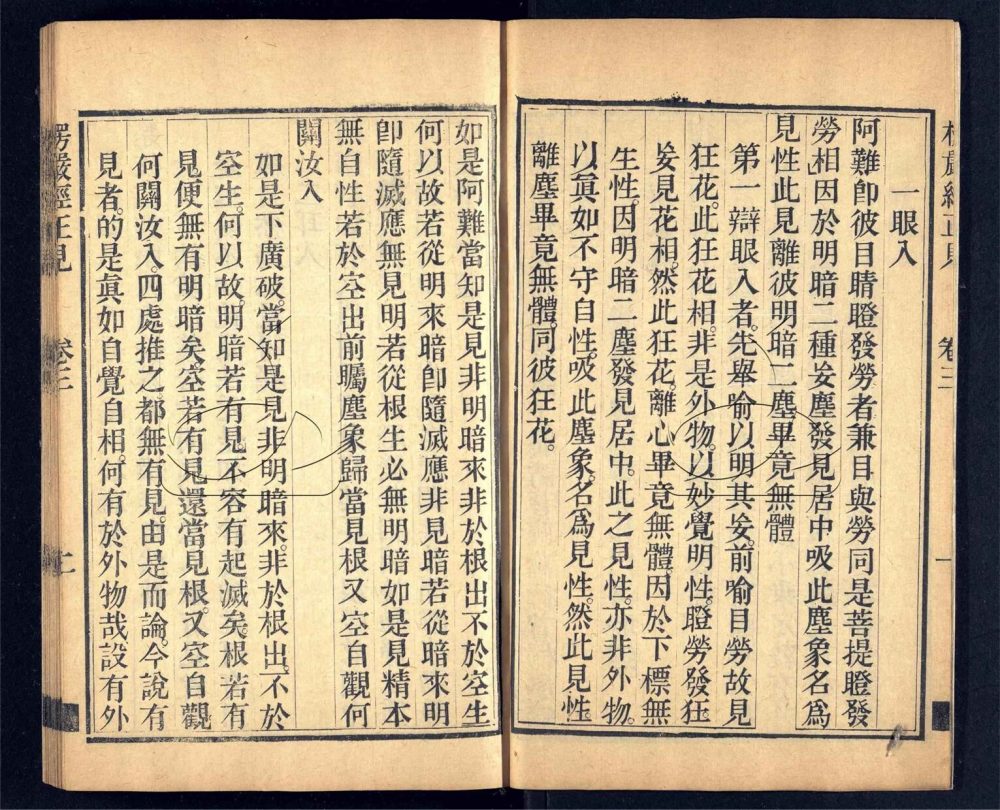 一眼入
阿難卽彼目睛瞪發勞者兼目與勞同是菩提瞪發
勞相因於明暗二種妄塵發見居中吸此塵象名爲
見性此見離彼明暗二塵畢竟無體
第一辯眼入者。先舉喻以明其妄。前喻目勞故見
狂花。此狂花相。非是外物。以妙覺明性。瞪勞發狂
妄見花相。然此狂花。離心畢竟無體因於下標無
生性。因明暗二塵發見居中。此之見性。亦非外物。
以眞如不守自性。吸此塵象。名爲見性。然此見性
離塵畢竟無體。同彼狂花。
如是阿難當知是見非明暗來非於根出不於空生
何以故若從明來暗卽隨滅應非見暗若從暗來明
卽隨滅應無見明若從根生必無明暗如是見精本
無自性若於空出前矚塵象歸當見根又空自觀何
關汝入
如是下廣破。當知是見非明暗來。非於根出。不於
空生。何以故。明暗若有見。不容有起滅矣。根若有
見便無有明暗矣。空若有見還當見根。又空自觀
何關汝入。四處推之都無有見。由是而論。今說有
見者。的是眞如自覺自相。何有於外物哉設有外
楞嚴經正見
卷三